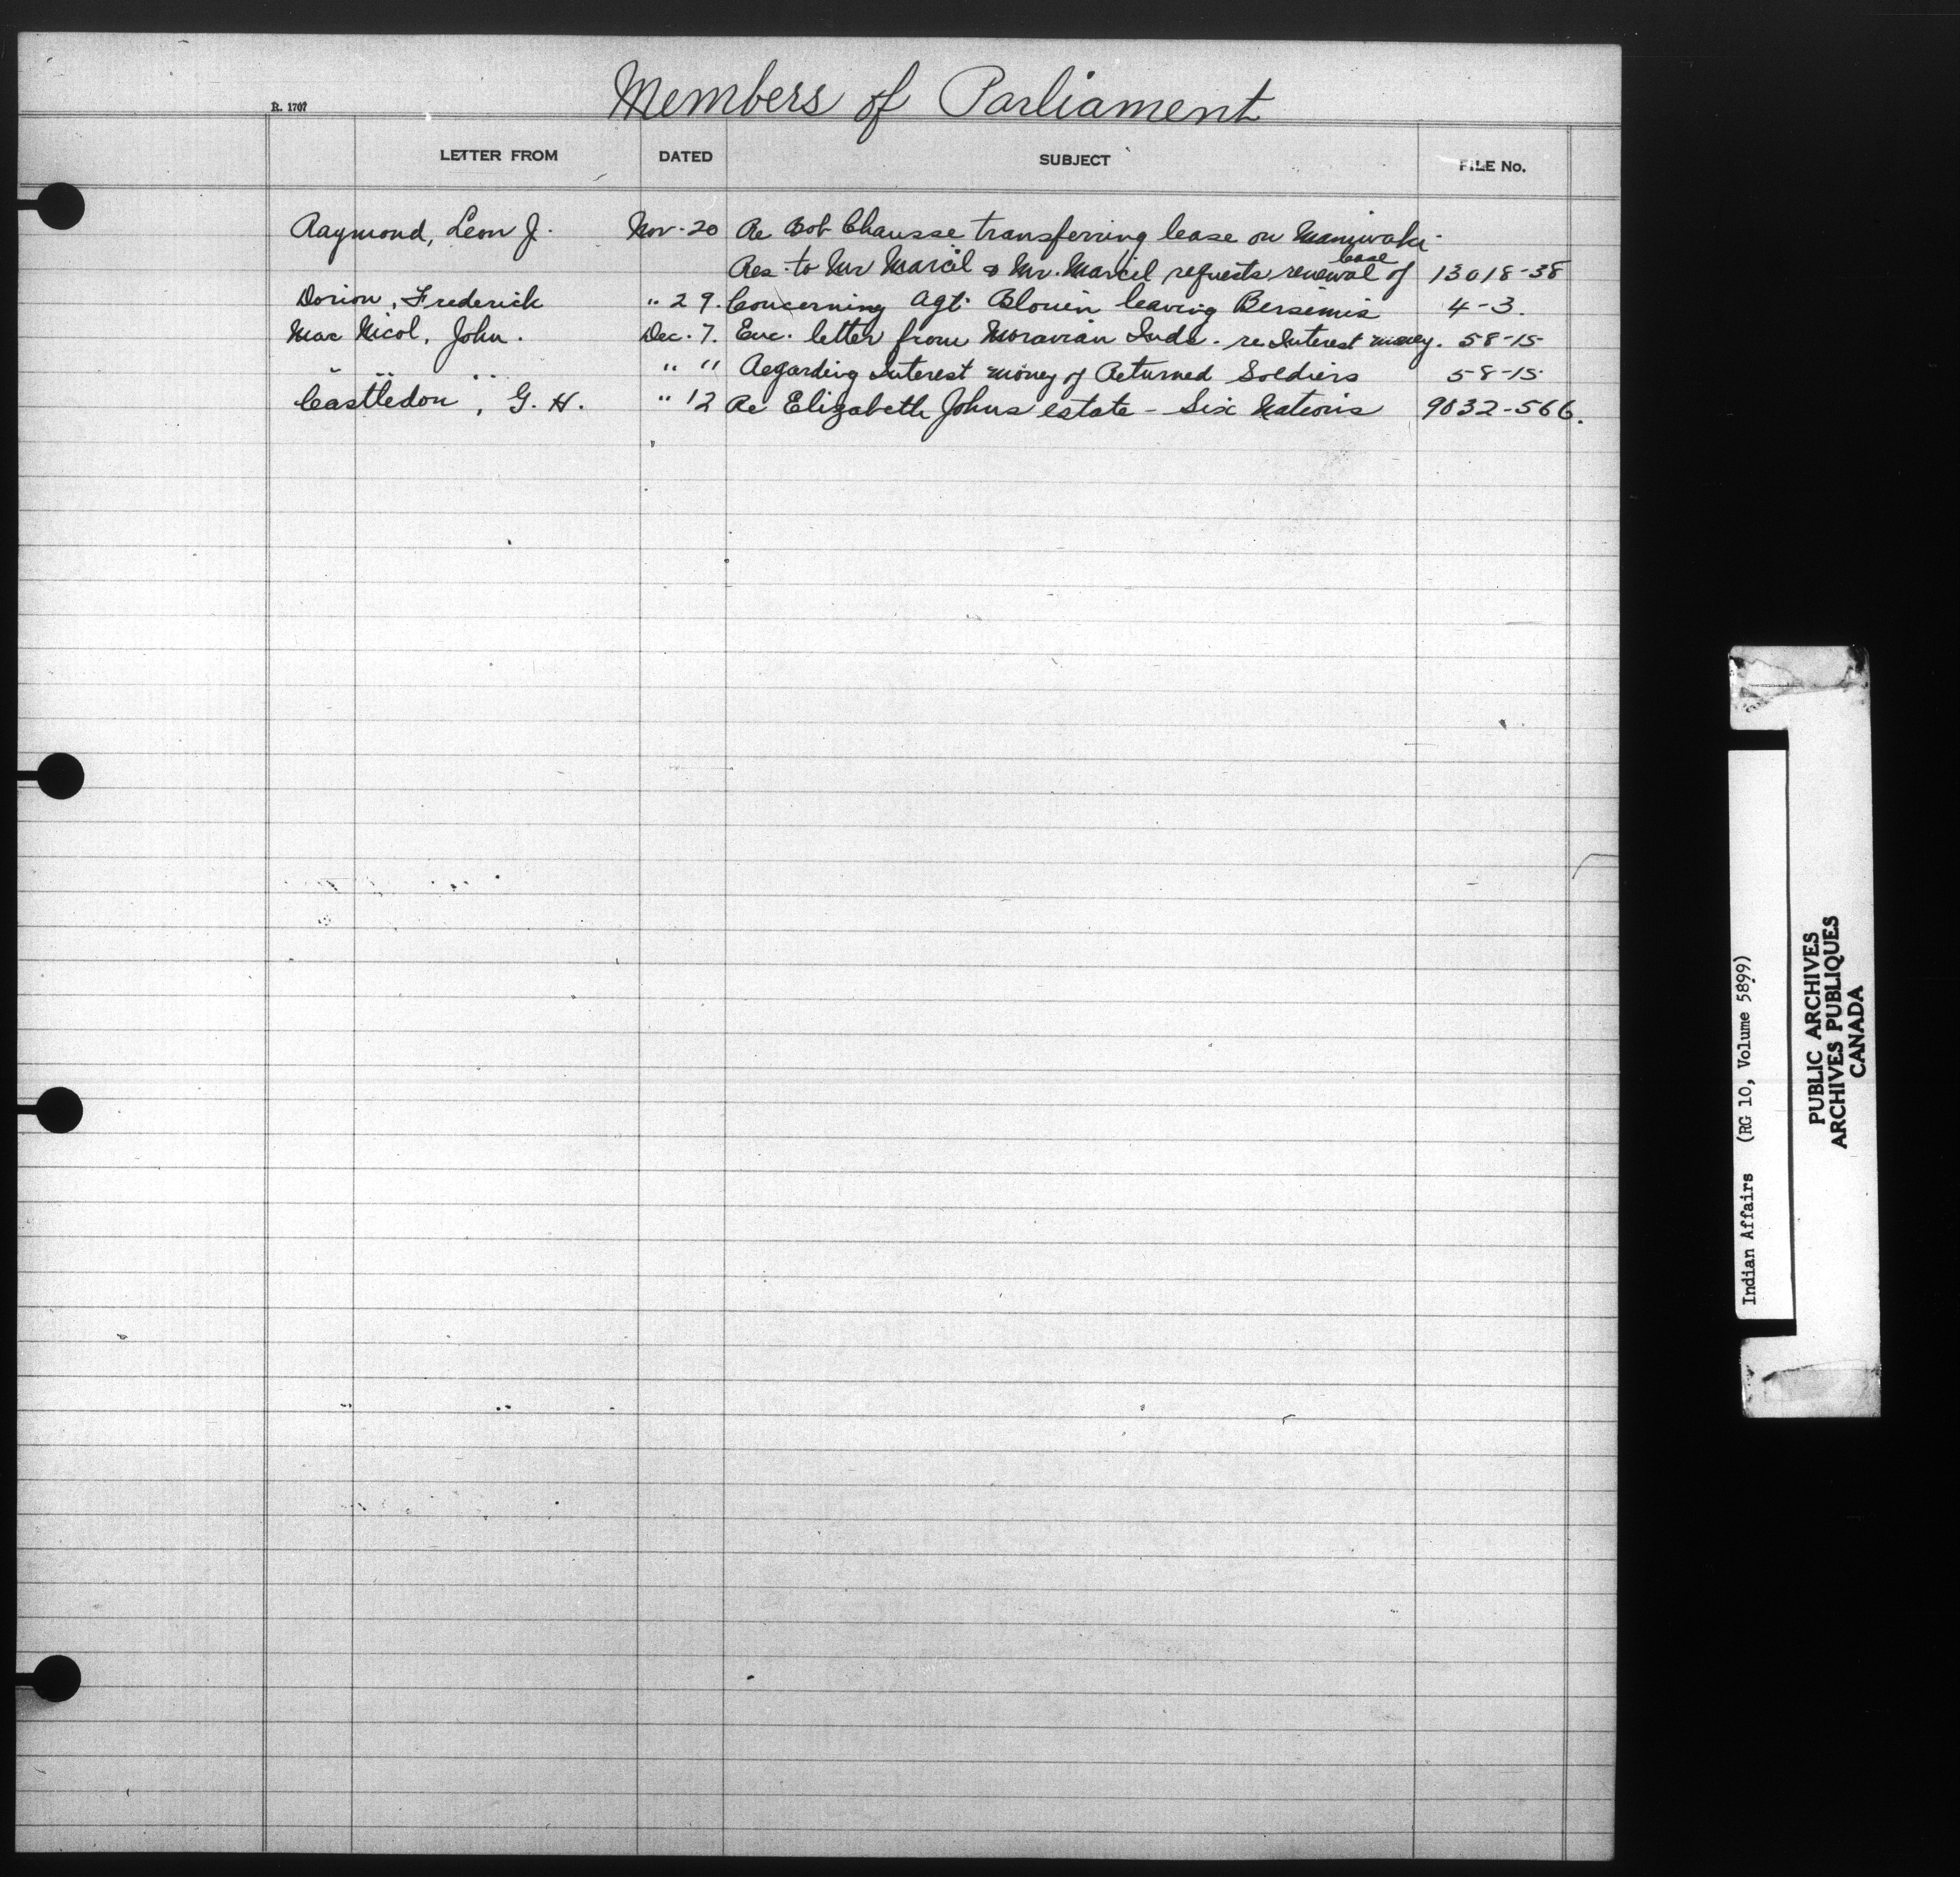 R. 1707
Members of Parliament
LETTER FROM DATED SUBJECT FILE No.
Raymond, Leon J. Nov. 20 Re Bob Chausse transferring lease on Maniwaki
lease
Res. to Mr Marcil & Mr. Marcil requests renewal of 13018-38
Dorion, Frederick " 29. Concerning Agt. Blouin leaving Bersimis 4-3.
Mac Nicol, John. Dec. 7. Enc. letter from Moravian Inds. re Interest money. 58-15
" " " " " Regarding Interest money of Returned Soldiers 58-15
Castledon, G. H. " 12 Re Elizabeth Johns estate - Six Nations 9032-566.
Indian Affairs (RG 10, Volume 5899)
PUBLIC ARCHIVES
ARCHIVES PUBLIQUES
CANADA